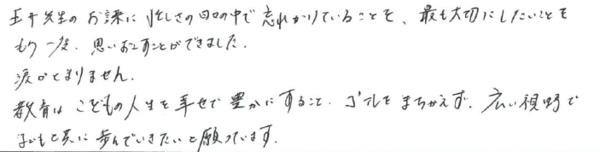 五十先生の お話に 忙しさの日々の中で 忘れかけていることを、最も大切にしたいことを
もう一度、思いおこすことができました。
涙がとまりません。
教育は こどもの人生を 幸せで 豊かに すること。 ゴールを まちがえず、広い視野で
子どもと共に 歩んでいきたいと 願っています。